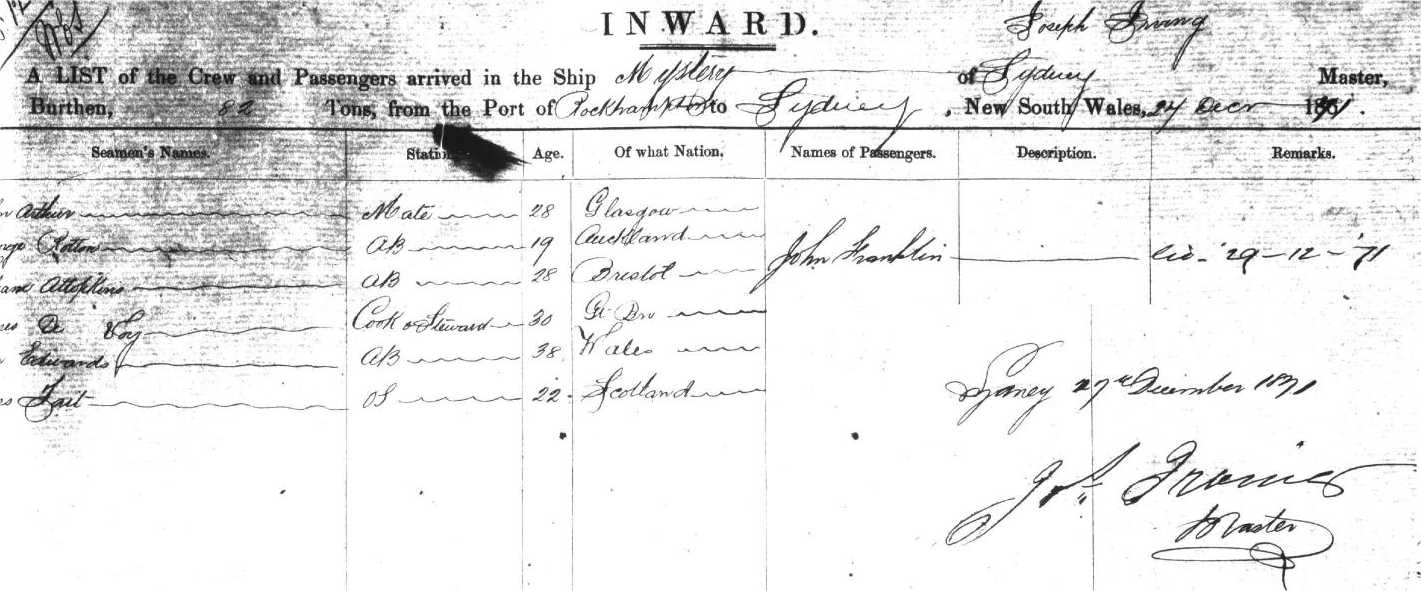 INWARD.
Joseph
A LIST of the Crew and Passengers arrived in the Ship Mystery of Sydney Master,
Burthen, 82 Tons, from the Port of Rockhampton to Sydney, New South Wales, 24 Decr 1871.
Seamen's Names. Station Age. Of what Nation. Names of Passengers. Description. Remarks.
Arthur Mate 28 Glasgow
Rotton AB 19 Auckland
John Franklin 29-12-71
AB 28 Bristol
De Foy Cook & Steward 30 Gt Bn
Edwards AB 38 Wales
Tait OS 22 Scotland
Sydney 27th December 1871
Jos
Master